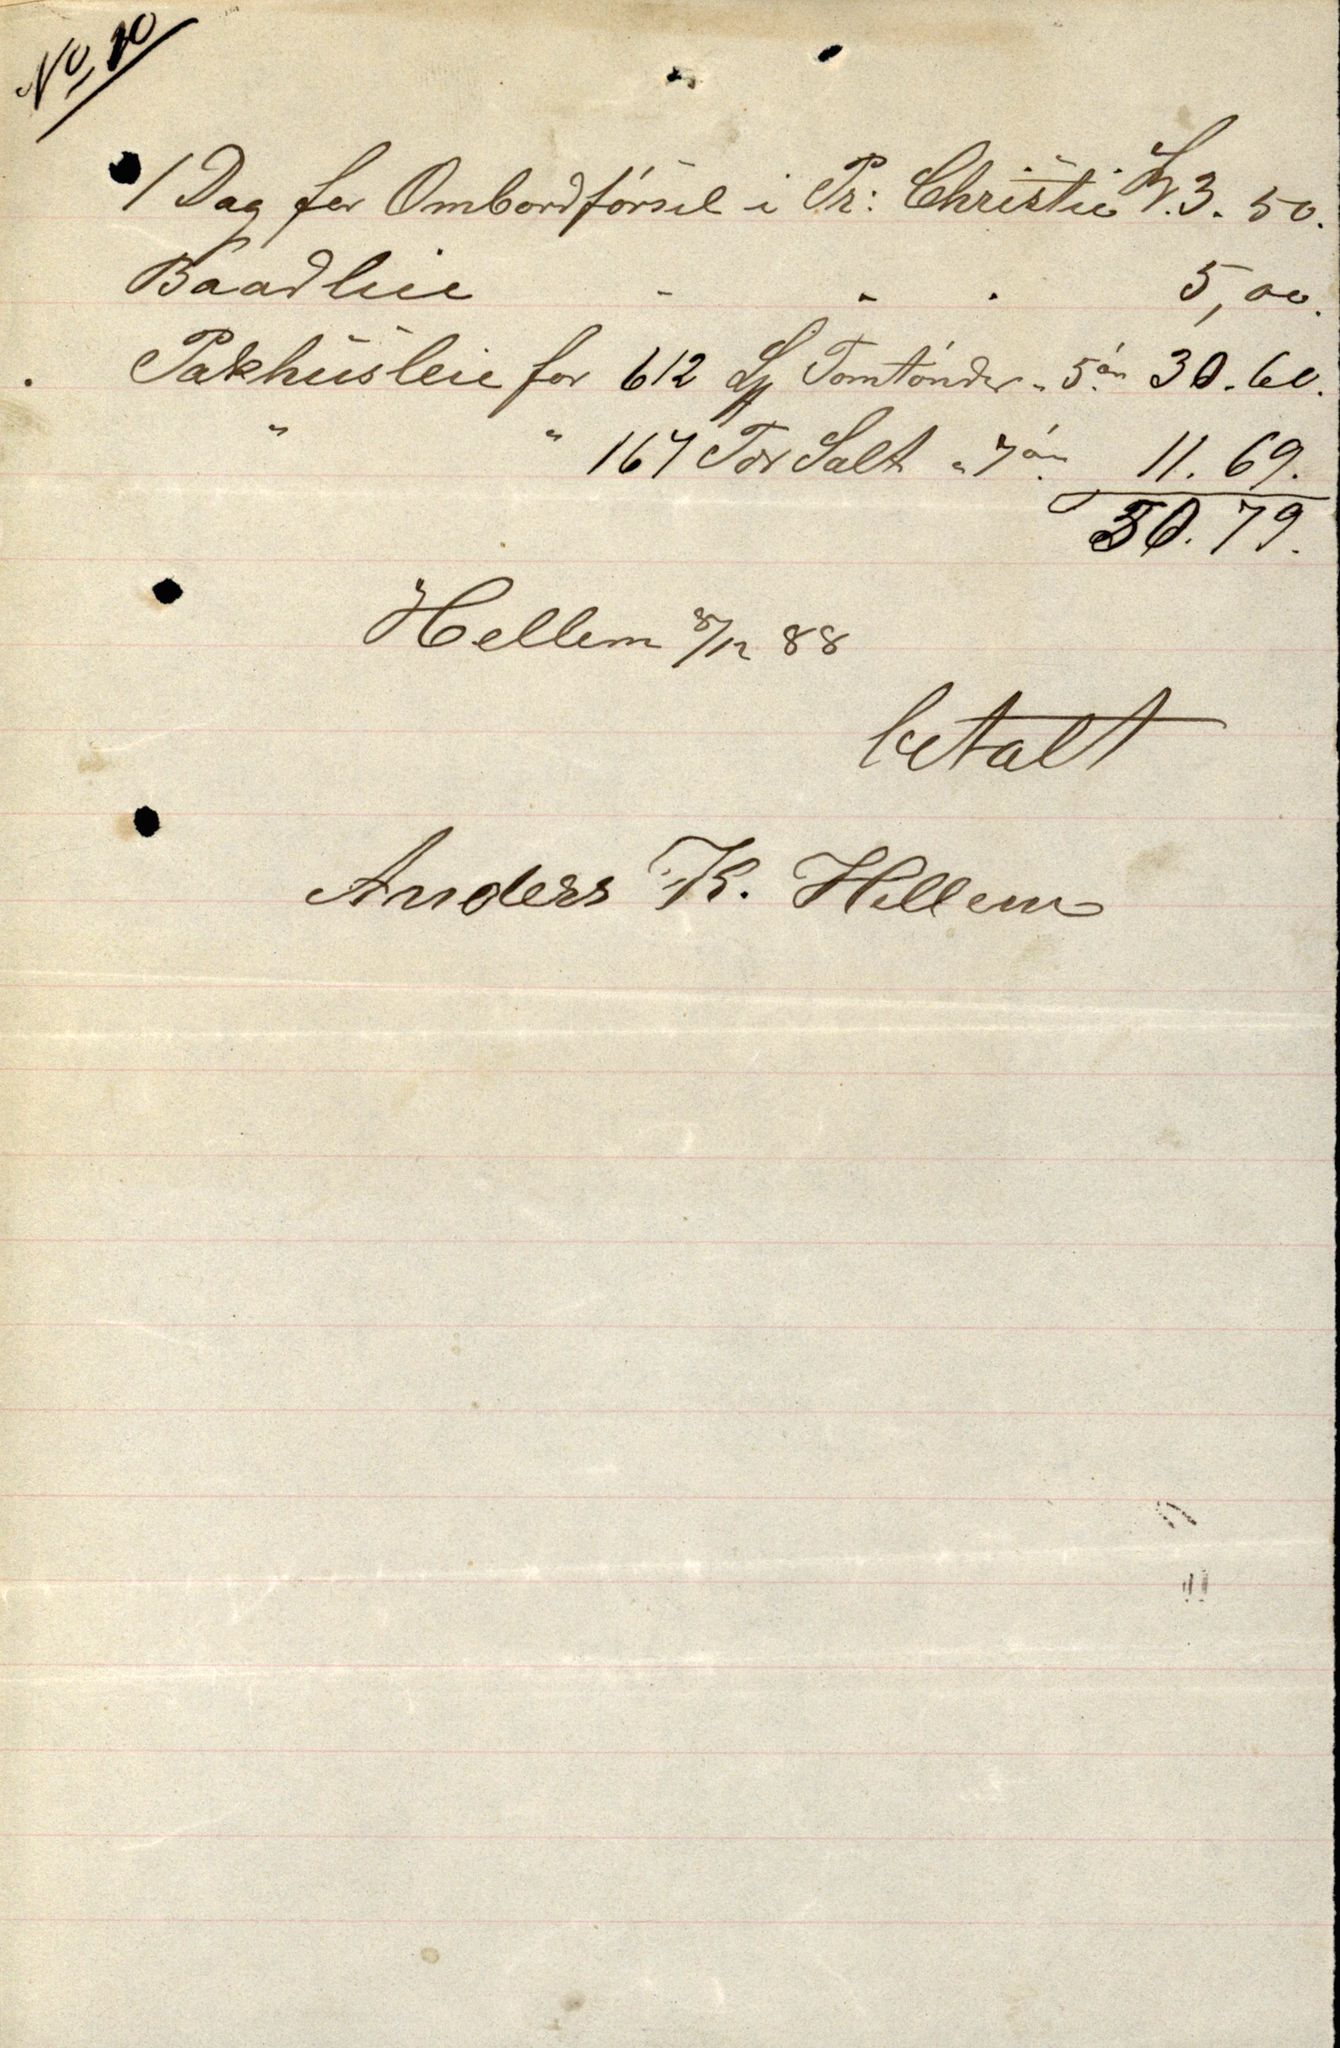 No 10
1 Dag for Ombordförsel i Pr: Christie Kr. 3. 50.
Baadleie - - . 5,00.
Pakhüsleie for 612 Tomtönder " 5 ör 30. 60.
" " 167 Tdr Salt " 7 ör 11. 69.
50. 79.
Hellem 8/12 88
betalt
Anders K. Hellem